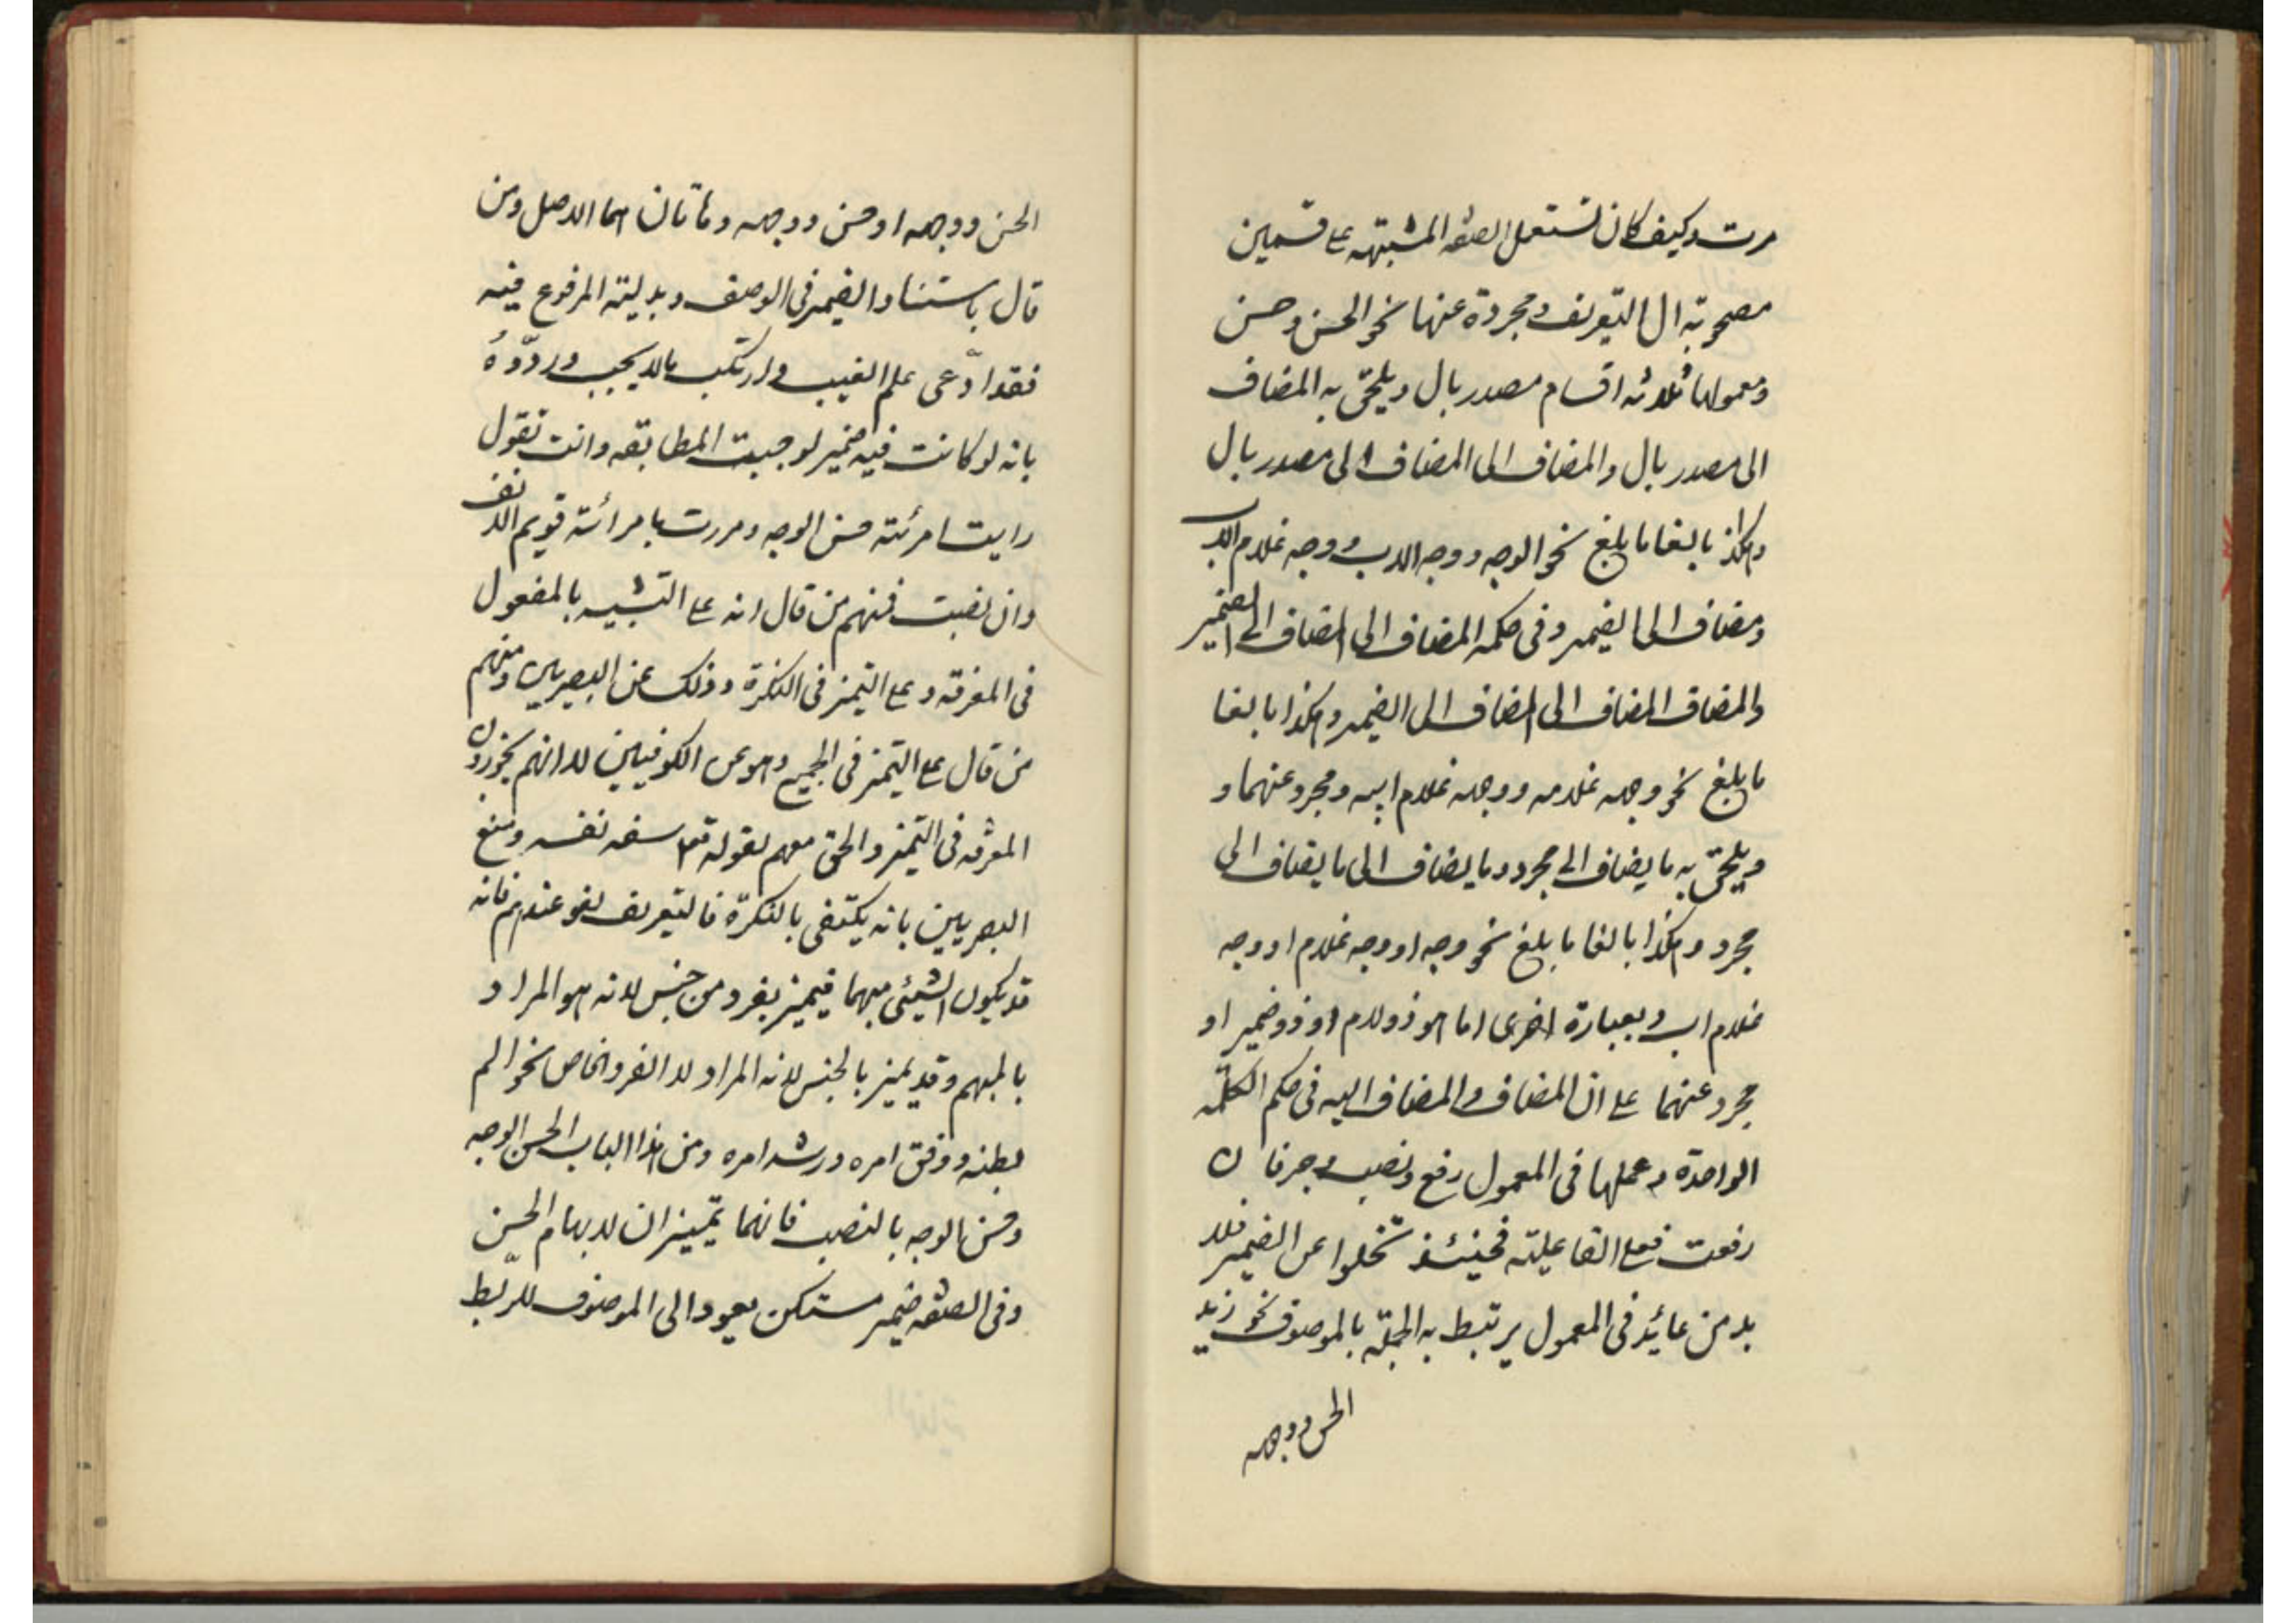 مرت وكيف كان تستعمل الصفة المشبهة على قسمين
مصحوبة ال التعريف ومجردة عنها نحو الحسن وحسن
ومعمولها ثلاثة اقسام مصدر بال ويلحق به المضاف
الى مصدر بال والمضاف الى المضاف الى مصدر بال
وهكذا بالغا ما بلغ نحو الوجه ووجه الاب ووجه غلام الاب
ومضاف الى الضمير وفى حكمه المضاف الى المضاف الى الضمير
والمضاف المضاف الى المضاف الى الضمير وهكذا بالغا
ما بلغ نحو وجهه غلامه ووجهه غلام ابيه ومجرد عنهما و
ويلحق به ما يضاف الى مجرد وما يضاف الى ما يضاف الى
مجرد وهكذا بالغا ما بلغ نحو وجه او وجه غلام او وجه
غلام اب وبعبارة اخرى اما هو ذو لام او ذو ضمير او
مجرد عنهما على ان المضاف والمضاف اليه فى حكم الكلمة
الواحدة وعملها فى المعمول رفع ونصب وجر فان
رفعت فعلى الفاعلية فحينئذ تخلوا عن الضمير فلا
بد من عائد فى المعمول يرتبط به الجملة بالموصوف نحو زيد
الحسن ووجهه
الحسن ووجهه او حسن ووجهه وهاتان هما الاصل ومن
قال باستناد الضمير فى الوصف وبدلية المرفوع فيه
فقد ادّعى علم الغيب وارتكب مالا يجب وردّوه
بانه لو كانت فيه ضمير لوجبت المطابقه وانت تقول
رايت امرئة حسن الوجه ومررت بامرائة قويم الانف
وان نصبت فمنهم من قال انه على التشبيه بالمفعول
فى المعرفة وعلى التميز فى النكرة وذلك عن البصريين ومنهم
من قال على التميز فى الجميع وهو عن الكوفيين لانهم يجوزون
المعرفه فى التميز والحق معهم لقوله تعا سفه نفسه ومنع
البصريين بانه يكتفى بالنكرة فالتعريف لغو عندهم فانه
قد يكون الشيئى مبهما فيميز بفرد من جنس لانه هو المراد
بالمبهم وقد يميز بالجنس لانه المراد لا الفرد الخاص نحو الم
بطنه ووفق امره ورشد امره ومن هذا الباب الحسن الوجه
وحسن الوجه بالنصب فانهما تميزان لابهام الحسن
وفى الصفة ضمير مستكن يعود الى الموصوف للرّبط